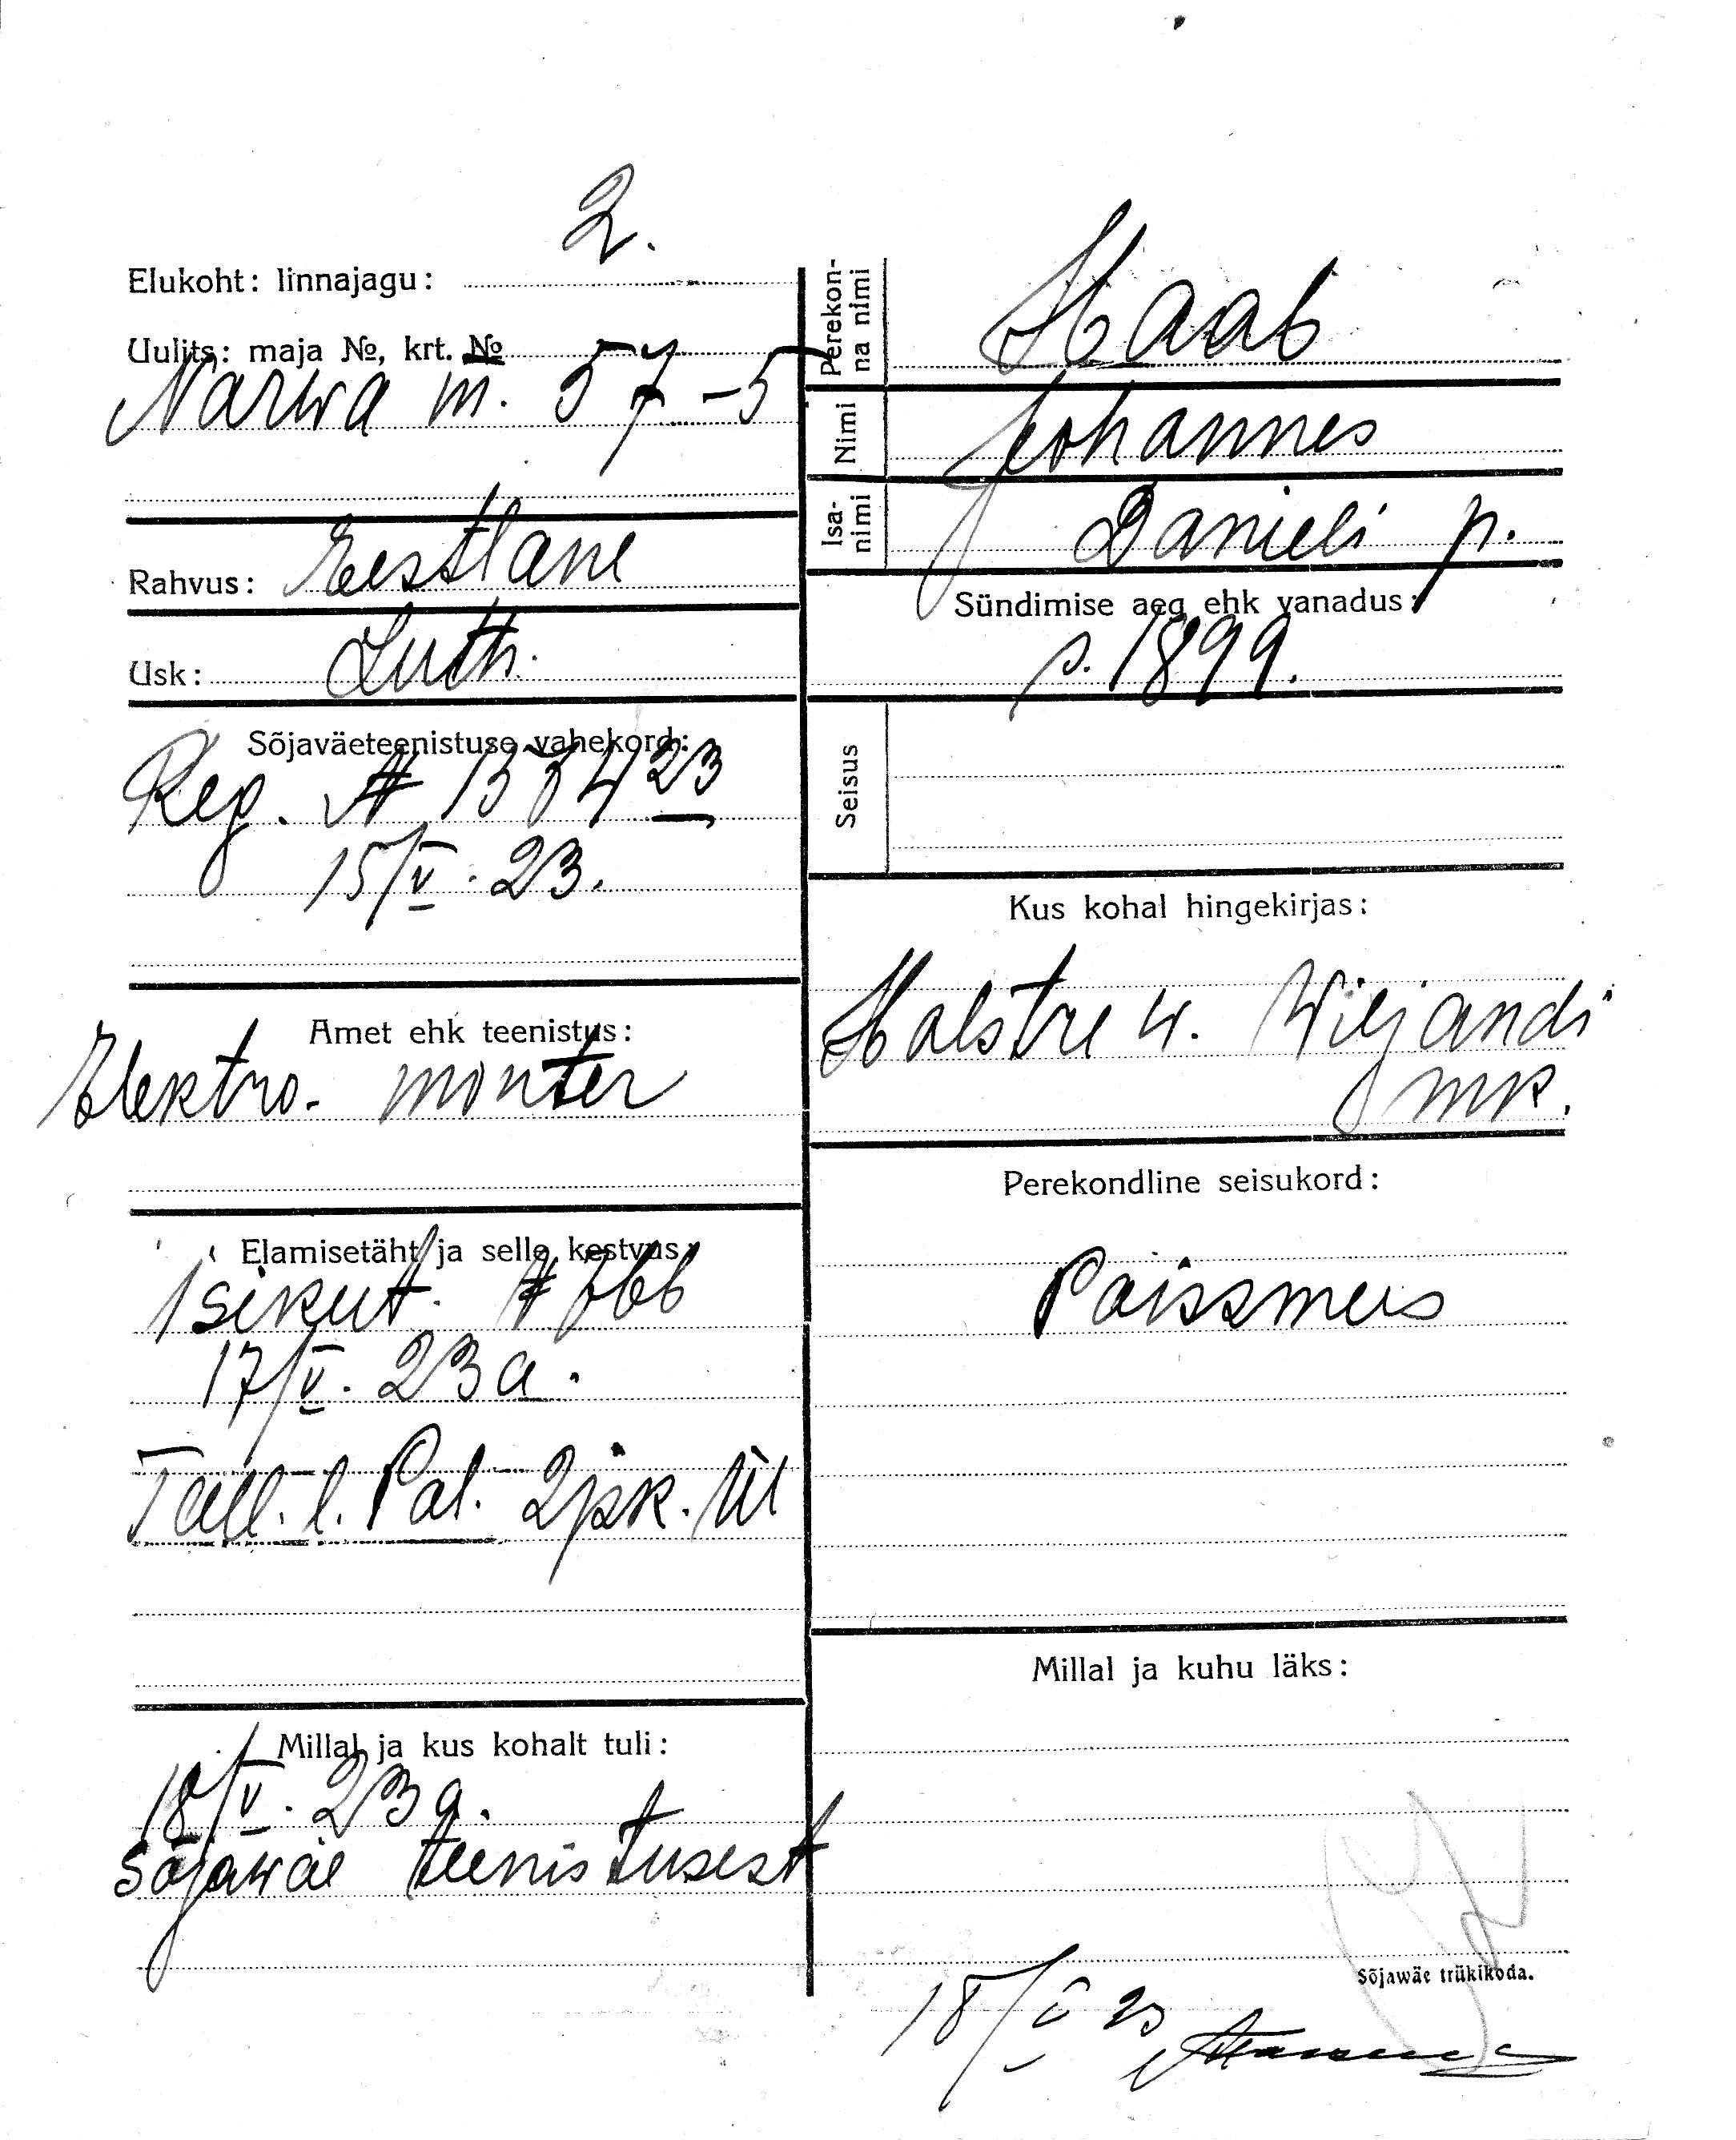 2.
Elukoht: linnajagu:
Uulits: maja №, krt. №
Narwa m. 57-5
Rahvus: Eestlane
Usk: Luth.
Sõjaväeteenistuse vahekord:
Reg. № 1374 23
15/V. 23.
Amet ehk teenistus:
Elektro-monter
Elamisetäht ja selle kestvus:
Isikut. № 766
17/V. 23 a.
Tall. l. Pol. 2 jsk. ül
Millal ja kus kohalt tuli:
18/V. 23 a.
Sõjawäe teenistusest
Perekonna nimi
Haab
Nimi
Johannes
Isanimi
Danieli p.
Sündimise aeg ehk vanadus:
s. 1899.
Seisus
Kus kohal hingekirjas:
Holstre w. Wiljandi
mk.
Perekondline seisukord:
Poissmees
Millal ja kuhu läks:
Sõjawäe trükikoda.
18/V 23